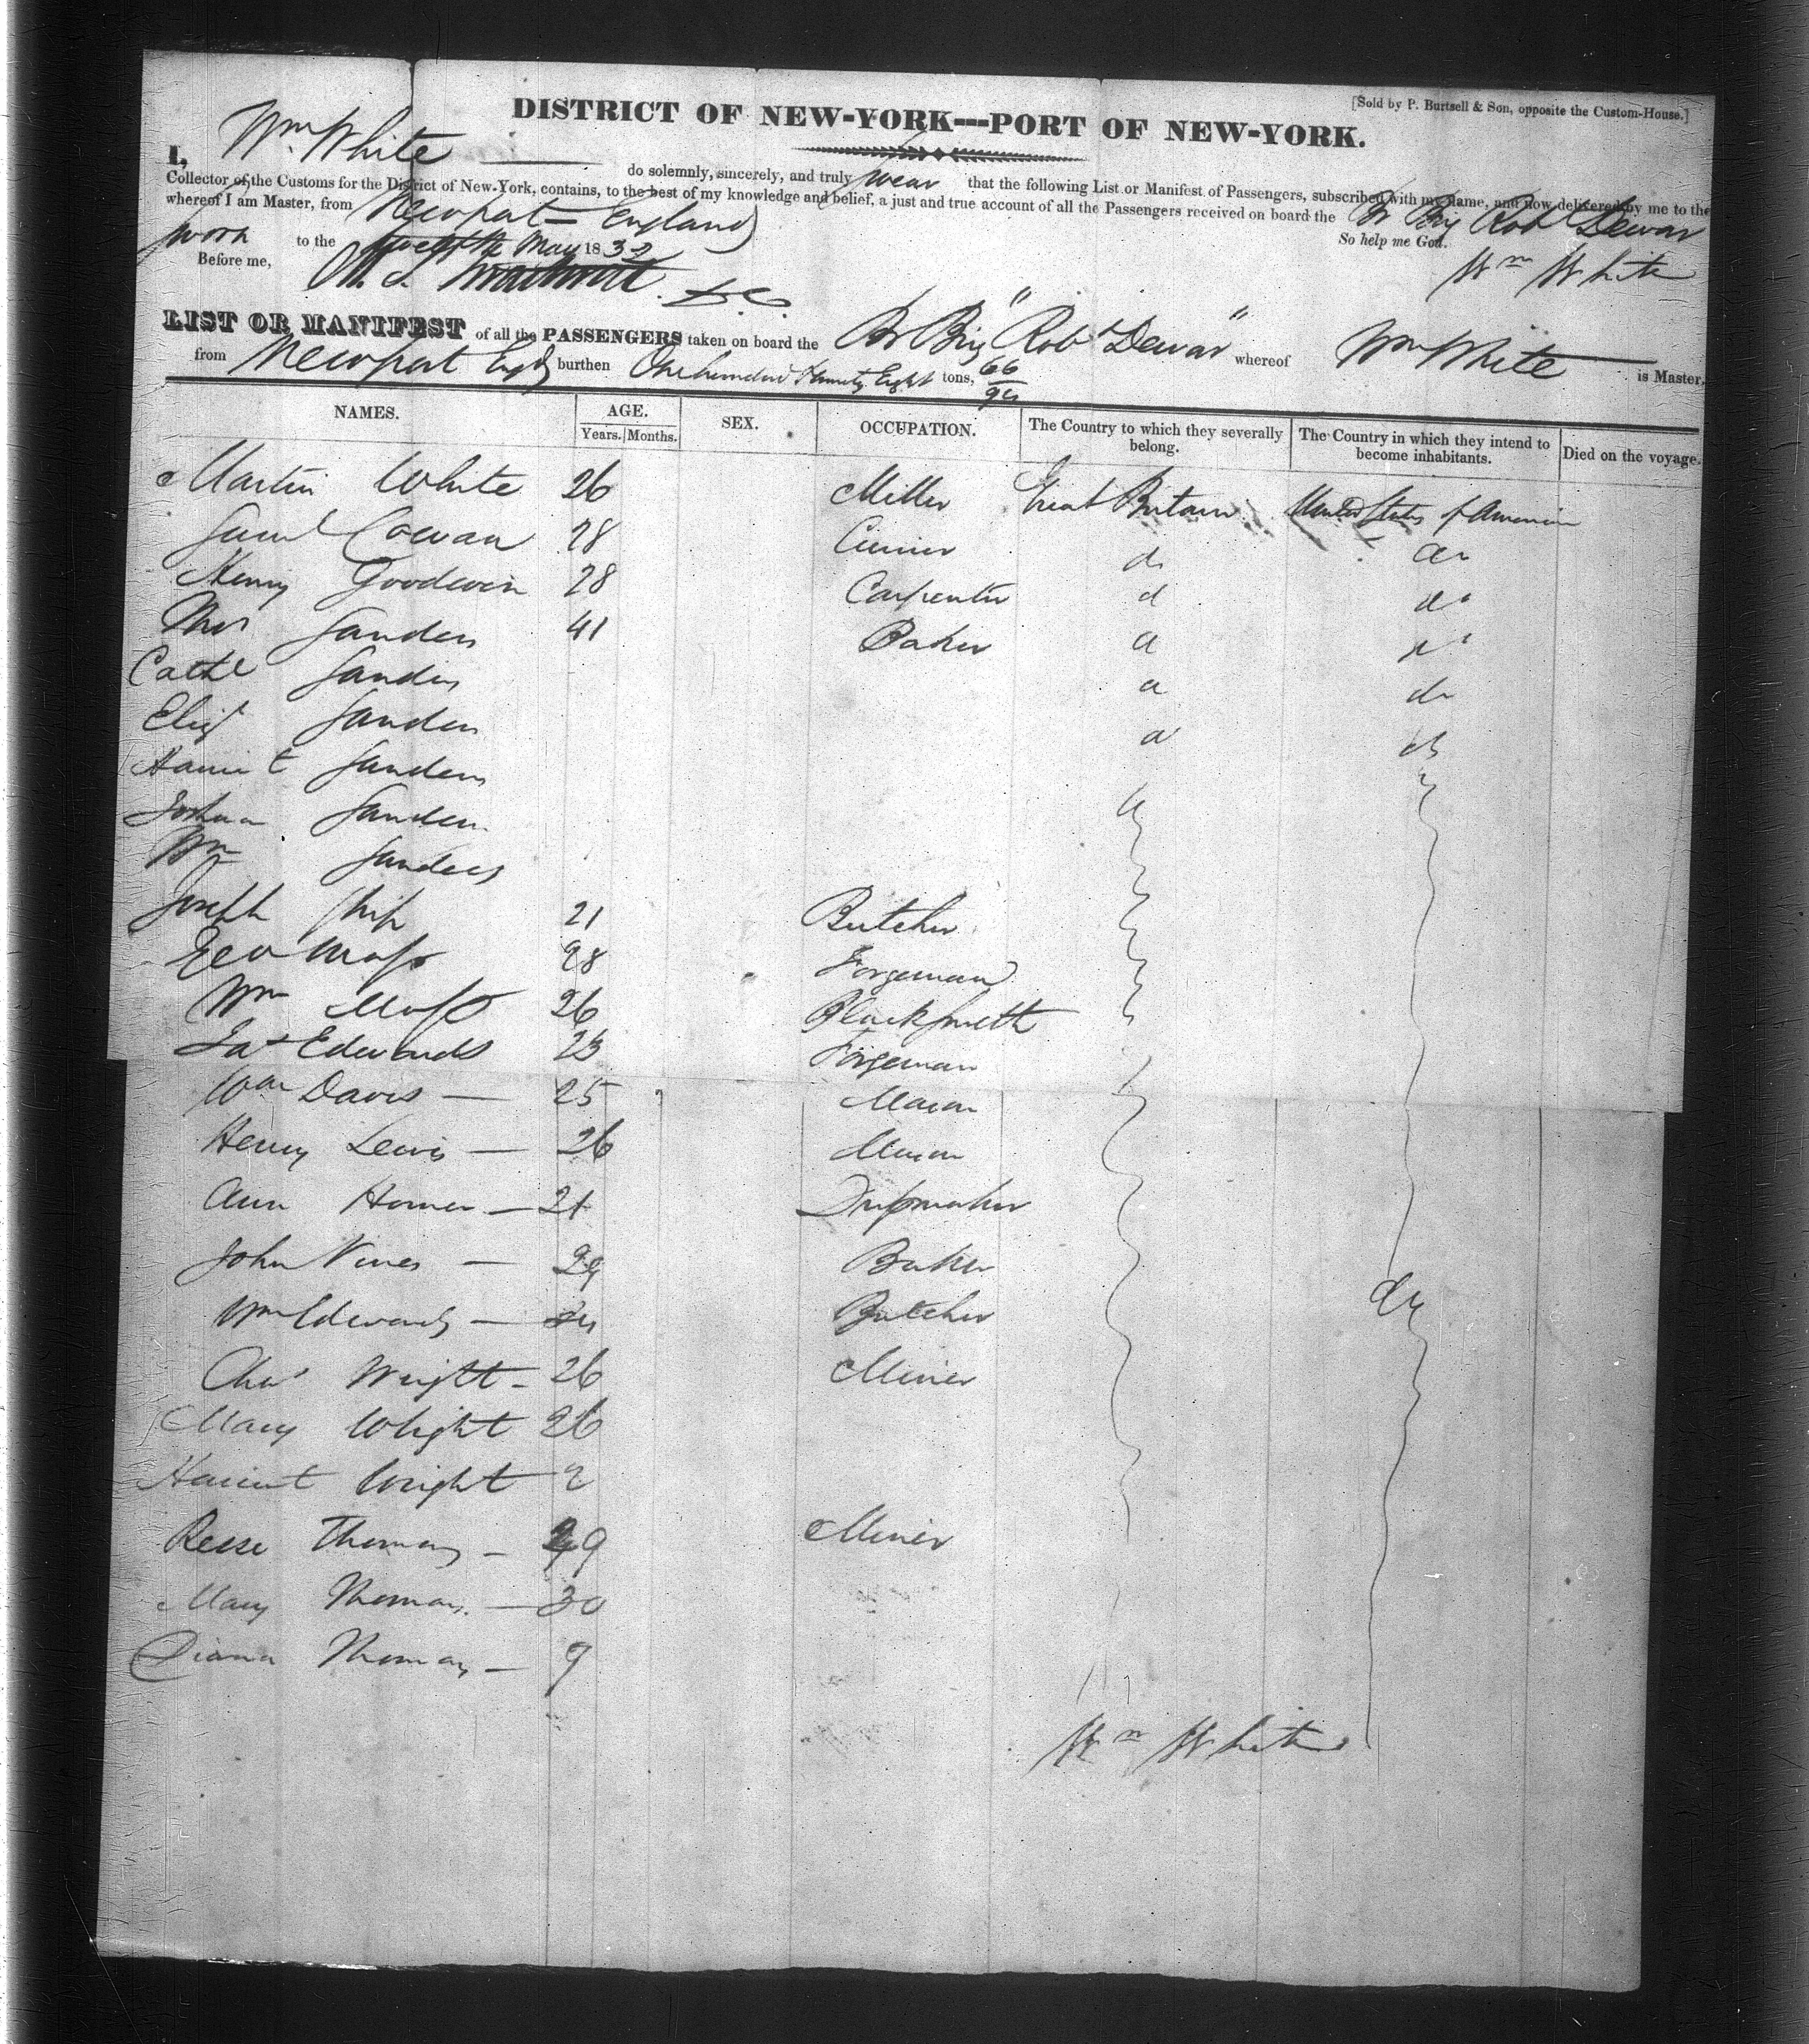 [Sold by P. Burtsell & Son, opposite the Custom-House.]
DISTRICT OF NEW-YORK---PORT OF NEW-YORK.
I, Wm White do solemnly, sincerely, and truly swear that the following List or Manifest of Passengers, subscribed with my name, and now delivered by me to the
Collector of the Customs for the District of New-York, contains, to the best of my knowledge and belief, a just and true account of all the Passengers received on board the Br Brig Robt Dewar
whereof I am Master, from Newport England
So help me God.
Sworn to the twelfth May 1832
Wm White
Before me,
LIST OR MANIFEST of all the PASSENGERS taken on board the Br Brig "Robt Dewar" whereof Wm White is Master,
from Newport Engd burthen One hundred Eight tons, 66
NAMES. AGE. SEX. OCCUPATION. The Country to which they severally belong. The Country in which they intend to become inhabitants. Died on the voyage.
Years. Months.
Martin White 26 Miller Great Britain United States of America
Saml Cowan 28 Currier do do
Henry Goodwin 28 Carpenter do do
Thos Sanders 41 Baker do do
Cathe Sanders do do
Eliz Sanders do do
Harriet Sanders
Joshua Sanders
Wm Sanders
Joseph Ship 21 Butcher
Geo Moss 28 Forgeman
Wm Moss 26 Blacksmith
Jas Edwards 23 Forgeman
Wm Davis — 25 Mason
Henry Lewis — 26 Mason
Ann Homer — 21
John Vines — 29 Baker
Wm Edwards — Butcher
Chas Wright - 26 Miner
Mary Wright 26
Harriet Wright 2
Reese Thomas — 29 Miner
Mary Thomas — 30
Diana Thomas — 9
Wm White